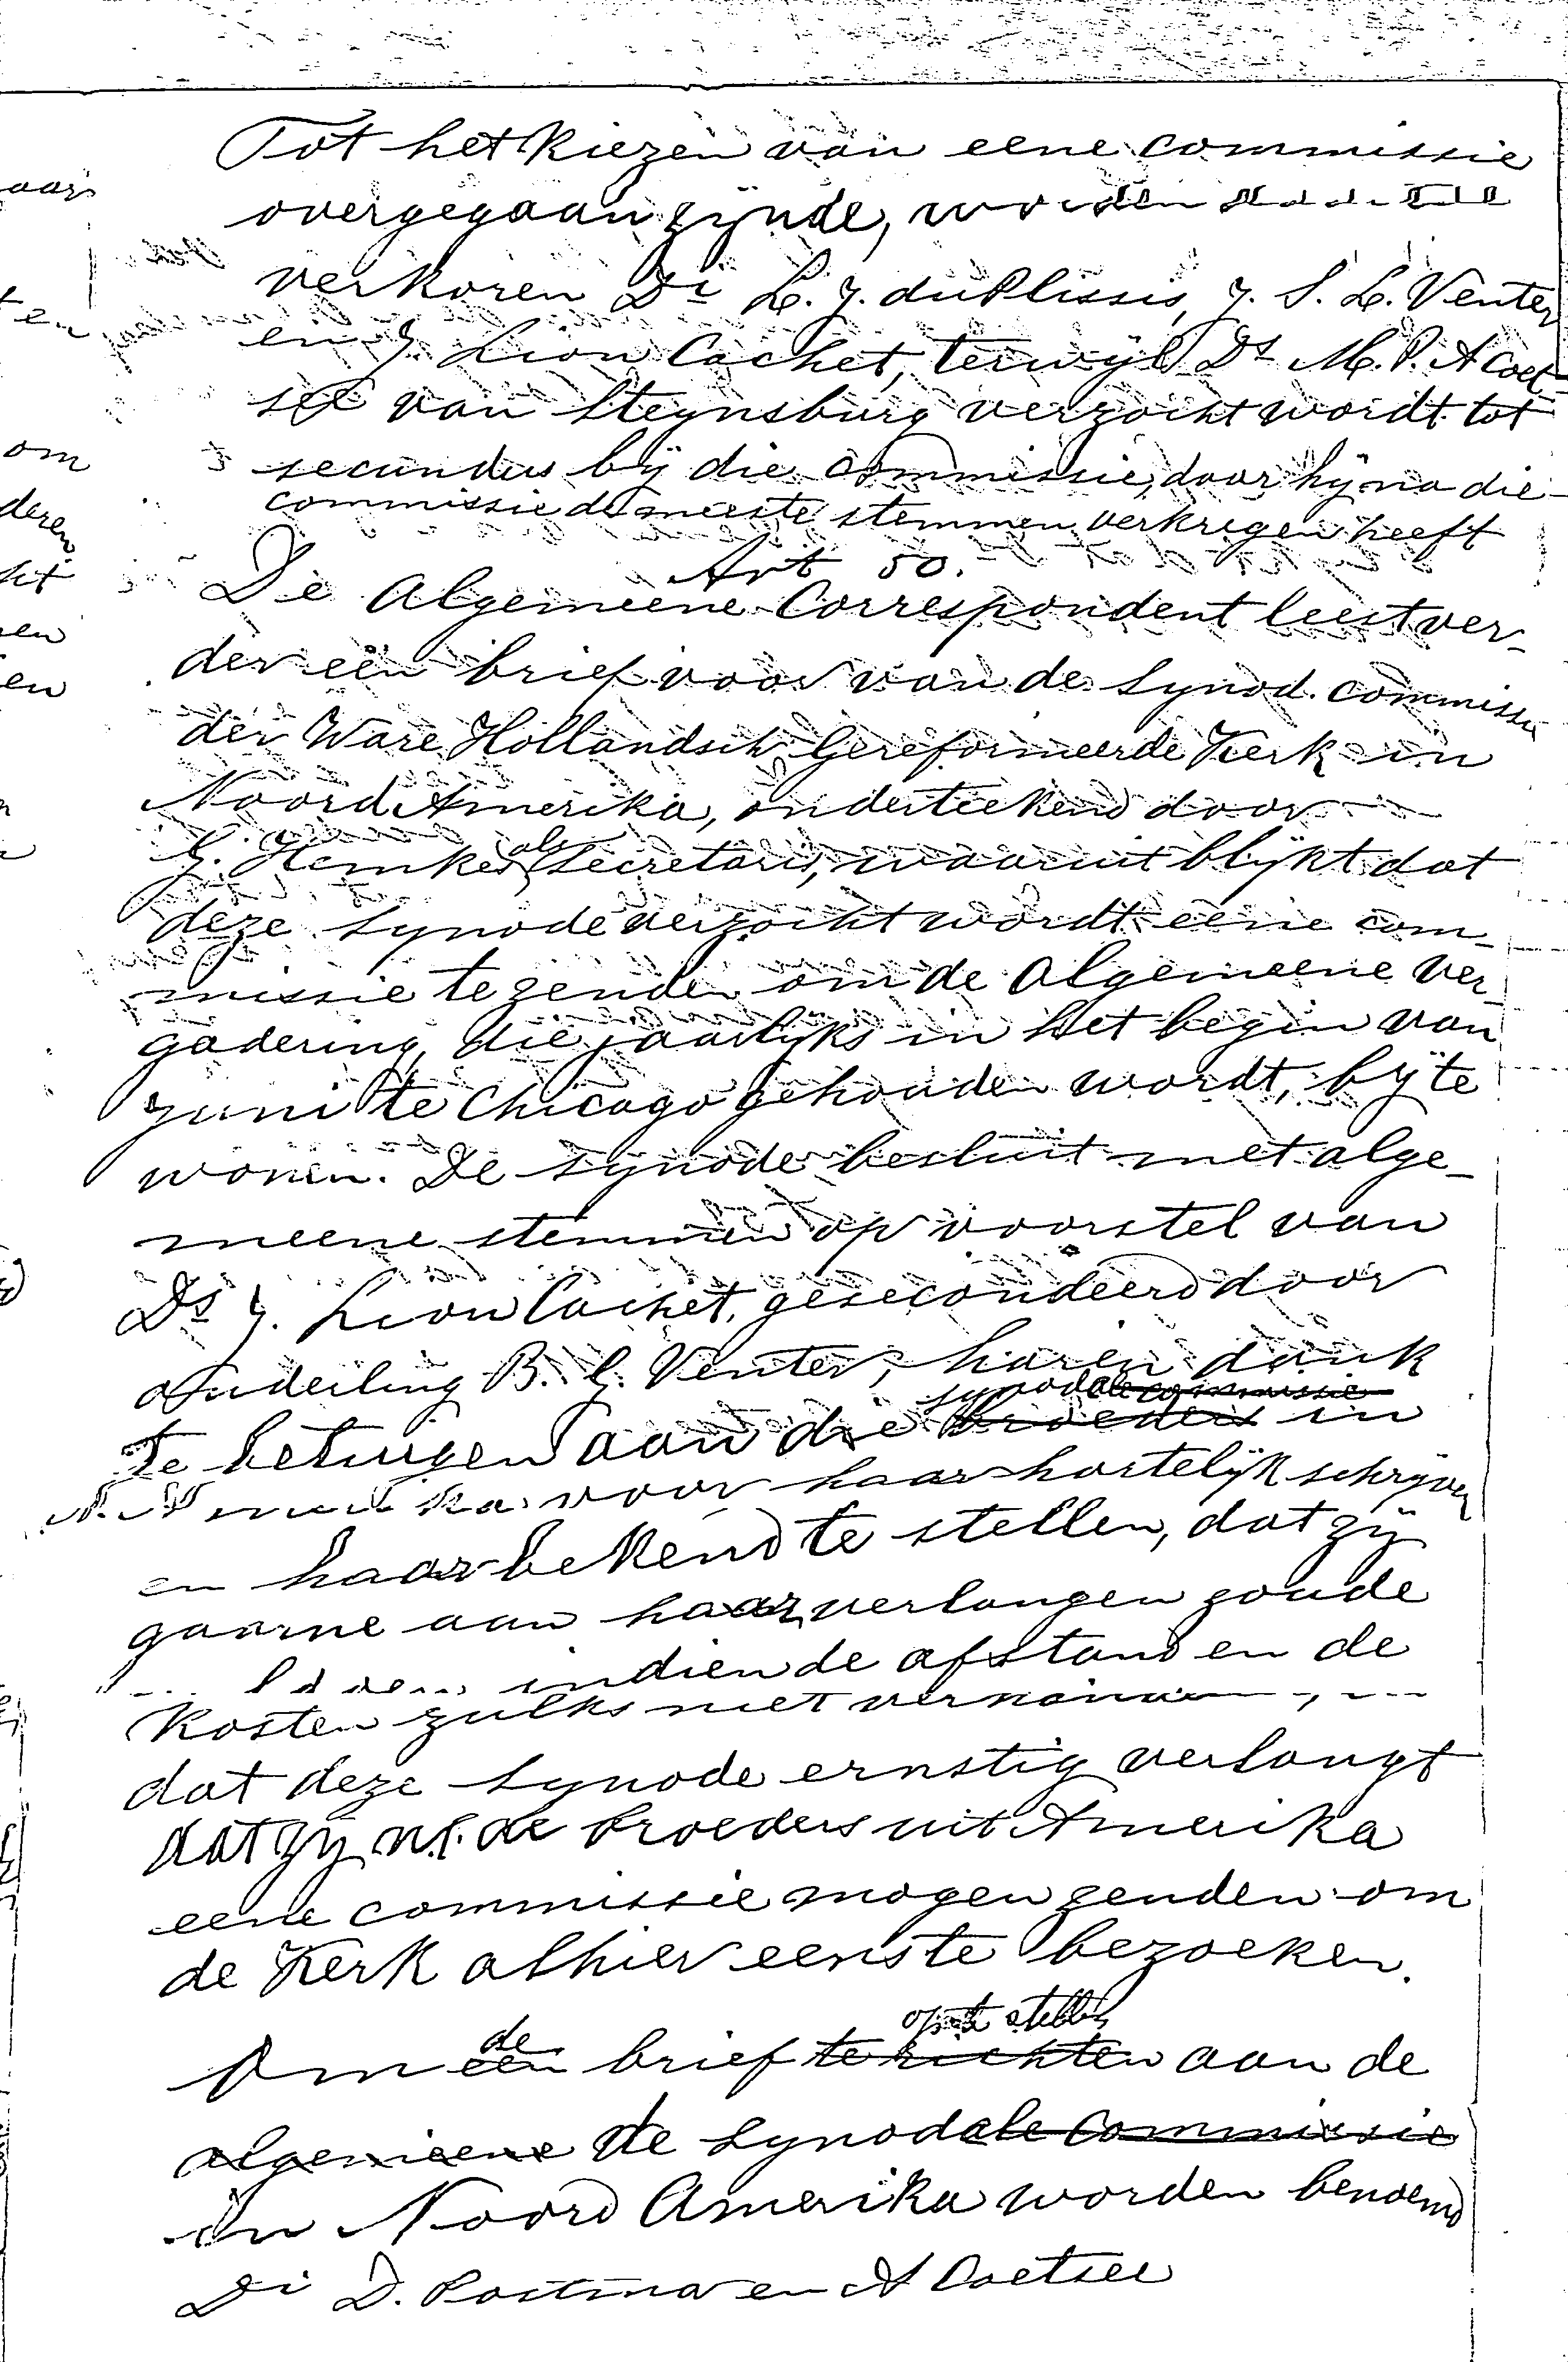 Tot het kiezen van eene commissie
overgegaan zijnde, worden
verkoren Di L. J. du Plessis, J. S. L. Venter
en J. Lion Cachet, terwijl Ds M. P. A Coet-
see van Steynsburg verzocht wordt tot
secundus bij die commissie, daar hij na die
commissie de meeste stemmen verkregen heeft
Art 50.
De Algemeene Correspondent leest ver-
der een brief voor van de Synod. commissie
der Ware Hollandsch Gereformeerde Kerk in
Noord Amerika, onderteekend door
G. Hemkes als Secretaris, waaruit blijkt dat
deze Synode verzocht wordt eene com-
missie te zenden om de Algemeene Ver-
gadering, die jaarlijks in het begin van
Juni te Chicago gehouden wordt, bij te
wonen. De Synode besluit met alge-
meene stemmen op voorstel van
Ds J. Lion Cachet, gesecondeerd door
Ouderling B. G. Venter, haren dank
synodale commissie
te betuigen aan die broeders in
N. Amerika voor haar hartelijk schrijven
en haar bekend te stellen, dat zij
gaarne aan haar verlangen zoude
indien de afstand en de
kosten zulks niet
dat deze Synode ernstig verlangt
dat zij n.l. de broeders uit Amerika
eene commissie mogen zenden om
de Kerk alhier eens te bezoeken.
de op te stellen
Om een brief te richten aan de
algemeene de Synodale Commissie
in Noord Amerika worden benoemd
Di D. Postma en A Coetsee
aar
ten
om
deren